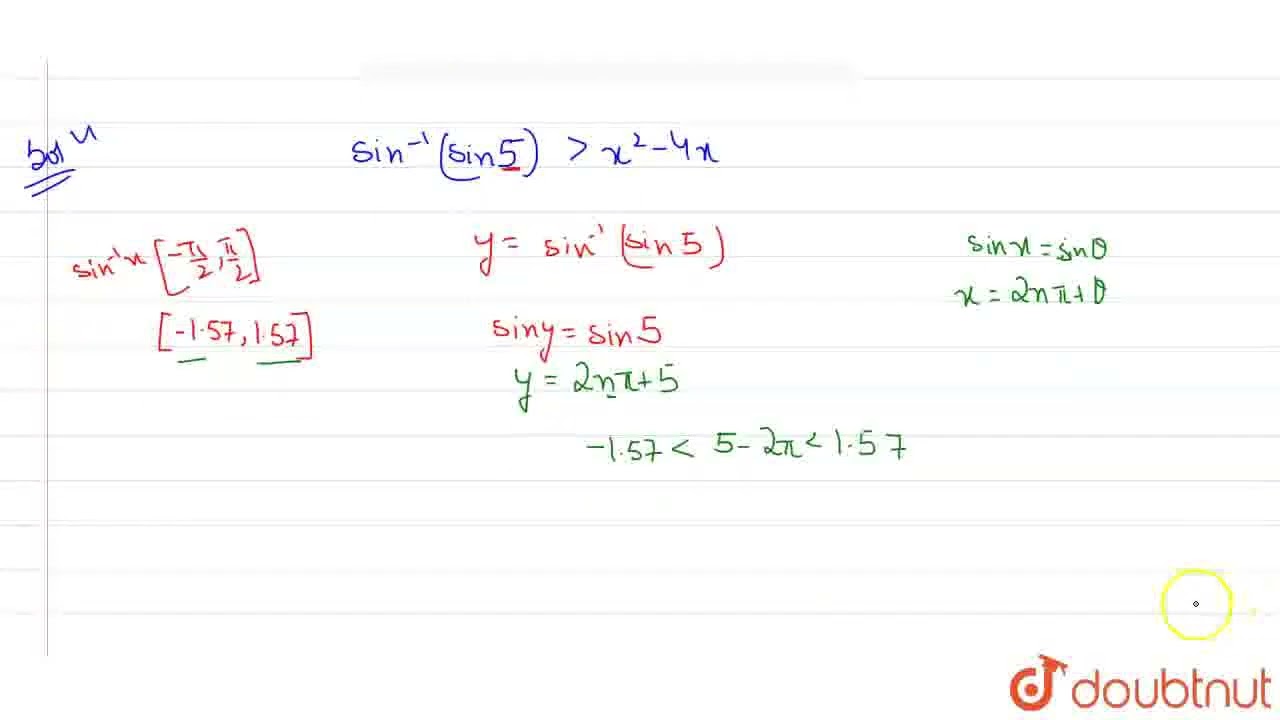 Solⁿ
sin⁻¹(sin5) > x² - 4x
sin⁻¹x [-π/2, π/2]
[-1.57, 1.57]
y = sin⁻¹(sin5)
siny = sin5
y = 2nπ + 5
-1.57 < 5 - 2π < 1.57
sinx = sinθ
x = 2nπ + θ
doubtnut